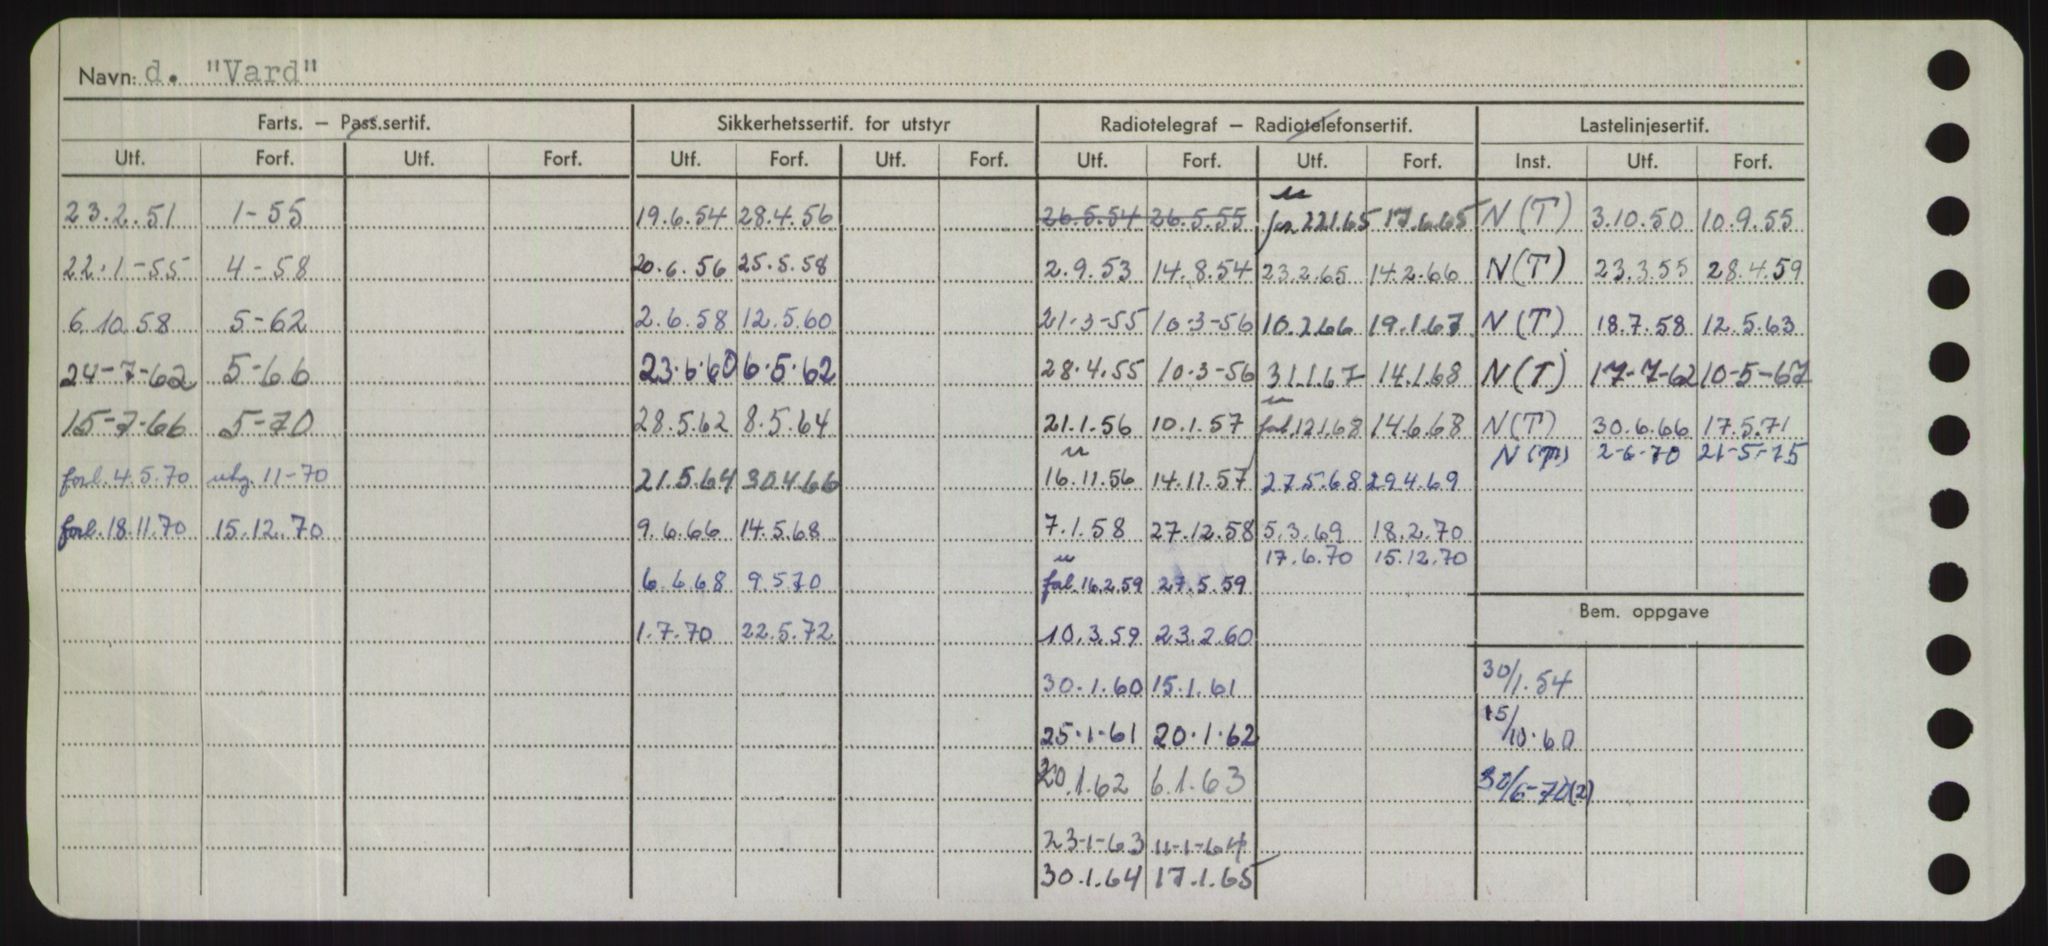 Navn: d. "Vard"
Farts. — Pass.sertif. Sikkerhetssertif. for utstyr Radiotelegraf — Radiotelefonsertif. Lastelinjesertif.
Utf. Forf. Utf. Forf. Utf. Forf. Utf. Forf. Utf. Forf. Utf. Forf. Inst. Utf. Forf.
23.2.51 1-55 19.6.54 28.4.56 26.5.54 26.5.55 22.1.65 17.6.65 N(T) 3.10.50 10.9.55
22.1-55 4-58 20.6.56 25.5.58 2.9.53 14.8.54 23.2.65 14.2.66 N(T) 23.3.55 28.4.59
6.10.58 5-62 2.6.58 12.5.60 21-3-55 10-3-56 10.2.66 19.1.67 N(T) 18.7.58 12.5.63
24-7-62 5-66 23.6.60 6.5.62 28.4.55 10-3-56 31.1.67 14.1.68 N(T) 17-7-62 10-5-67
15-7-66 5-70 28.5.62 8.5.64 21.1.56 10.1.57 forl. 12.1.68 14.6.68 N(T) 30.6.66 17.5.71
N(T) 2-6-70 21-5-75
forl. 4.5.70 utg. 11-70 21.5.64 30.4.66 16.11.56 14.11.57 27.5.68 29.4.69
forl. 18.11.70 15.12.70 9.6.66 14.5.68 7.1.58 27.12.58 5.3.69 18.2.70
17.6.70 15.12.70
6.6.68 9.5.70 forl. 16.2.59 27.5.59
Bem. oppgave
1.7.70 22.5.72 10.3.59 23.2.60
30.1.60 15.1.61 30/1.54
25.1.61 20.1.62 15/10.60
20.1.62 6.1.63 30/6-70(2)
23-1-63 11-1-64
30.1.64 17.1.65